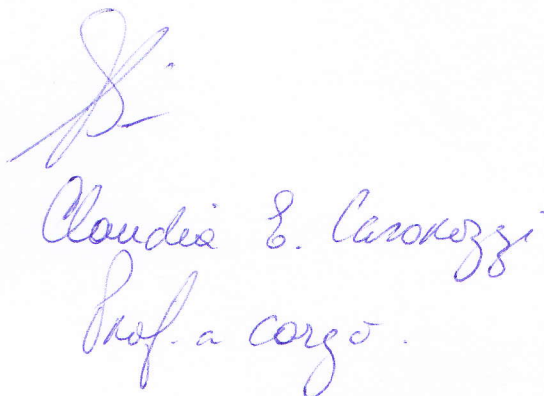 Claudia E. Casonozzi
Prof. a cargo.